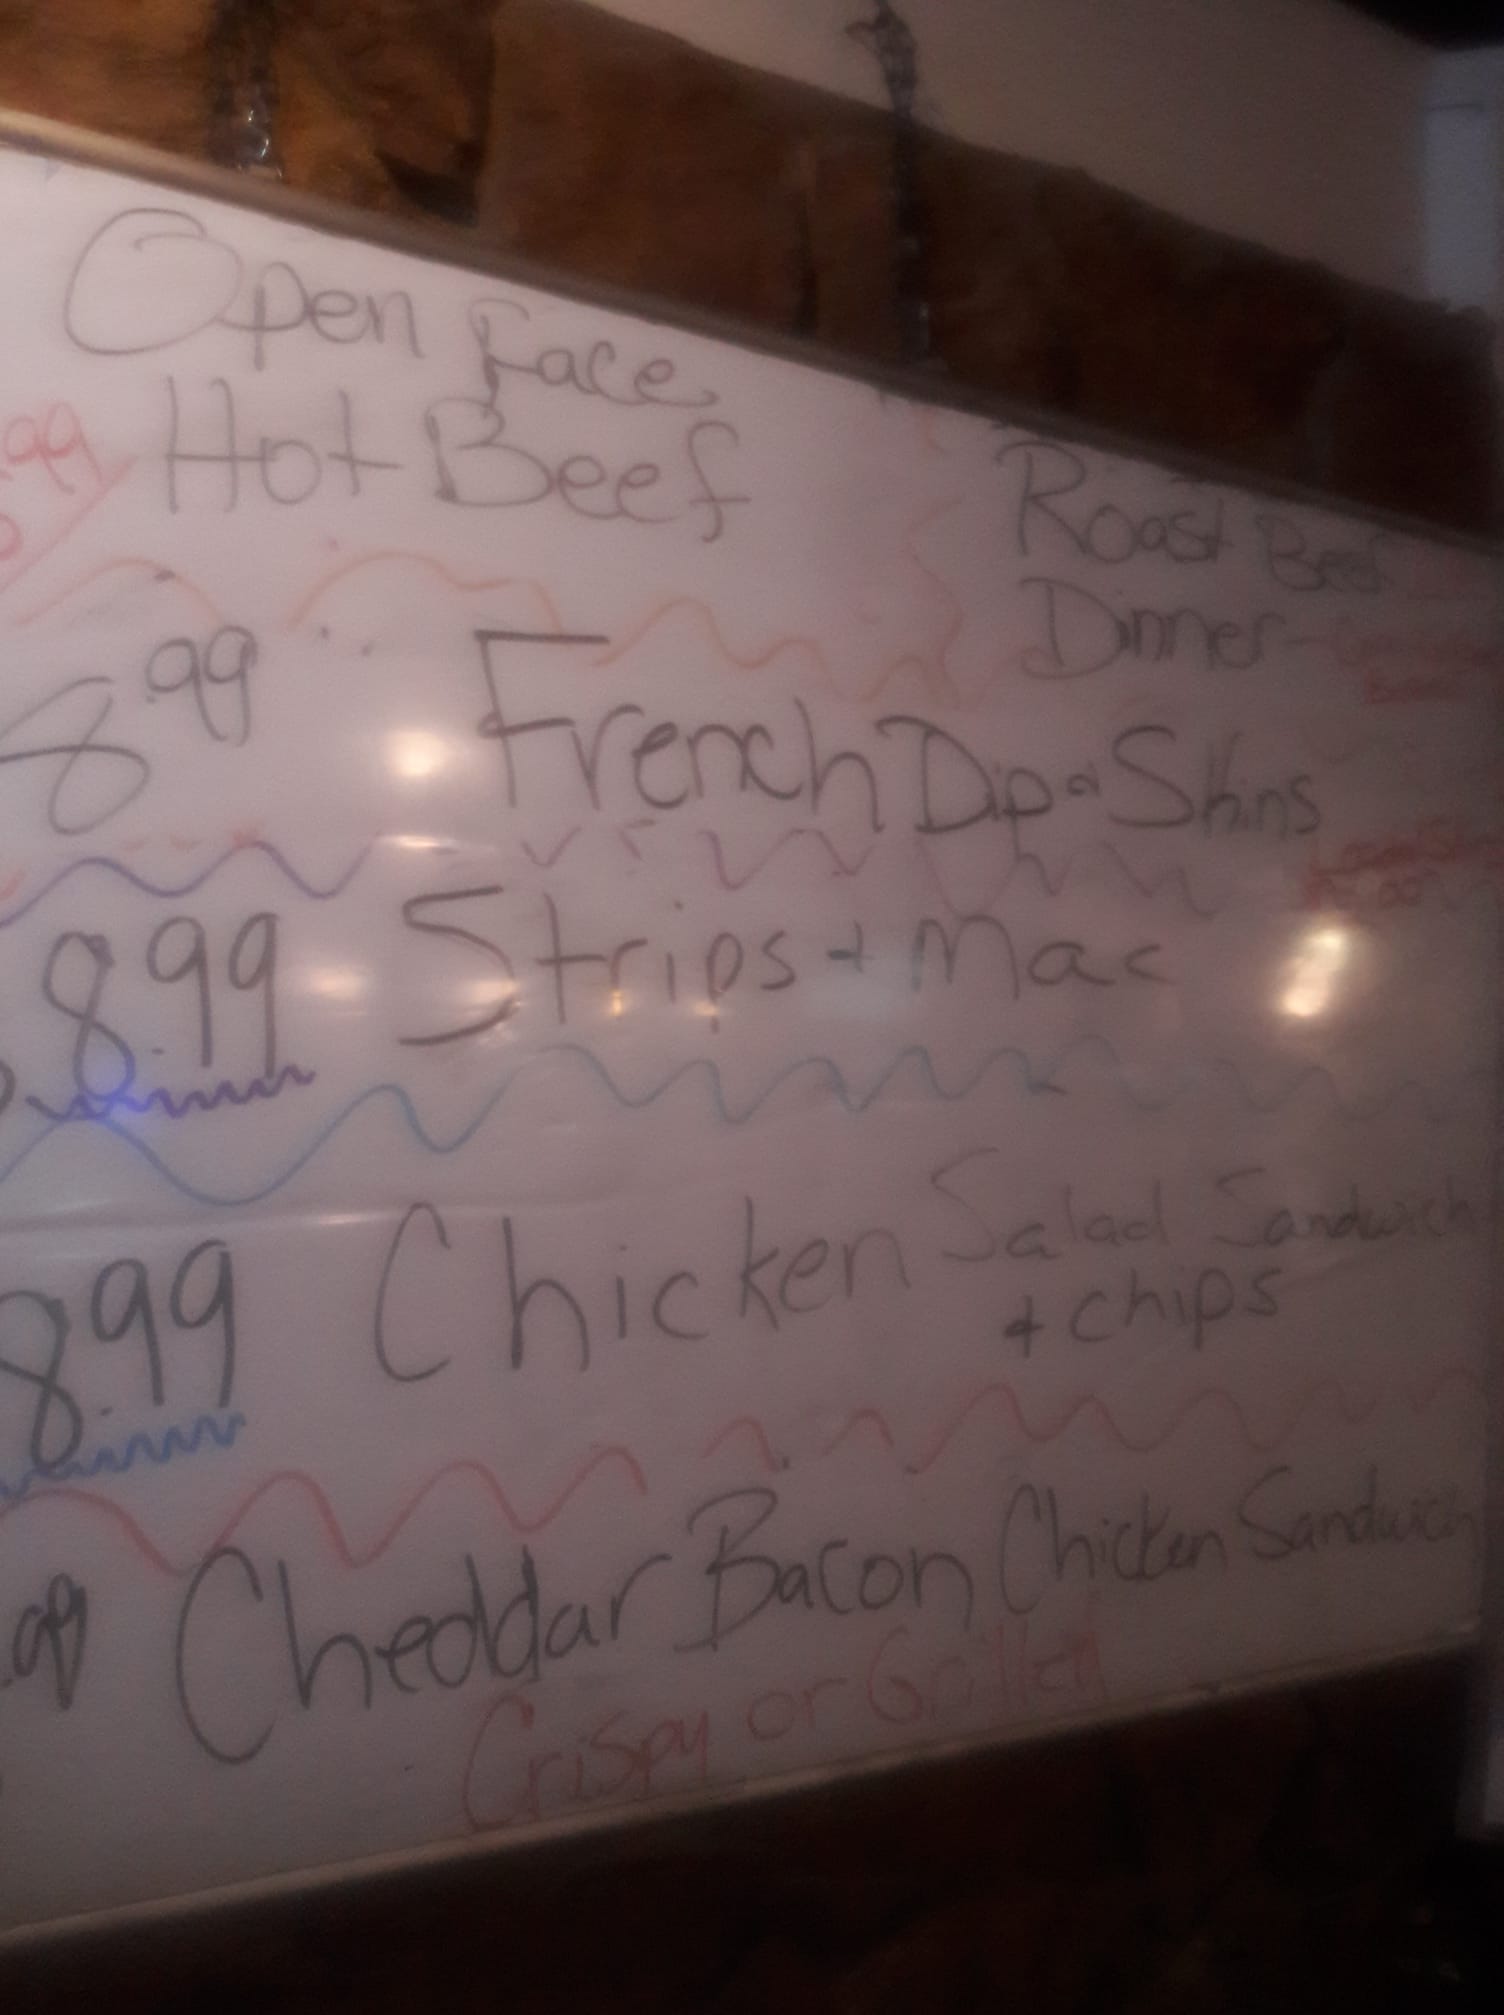 Open Face
.99 Hot Beef
Roast Beef
Dinner -
8.99 French Dip & Skins
8.99 Strips + Mac
8.99 Chicken Salad Sandwich
+ chips
.99 Cheddar Bacon Chicken Sandwich
Crispy or Grilled